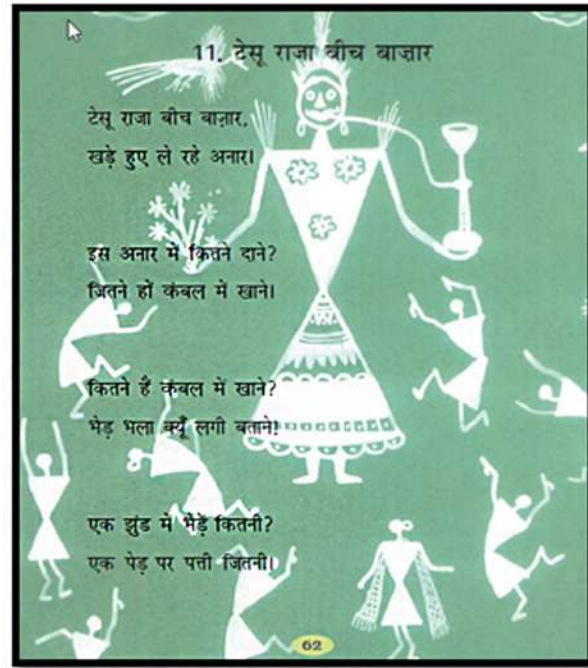 11. टेसू राजा बीच बाज़ार
टेसू राजा बीच बाज़ार,
खड़े हुए ले रहे अनार।
इस अनार में कितने दाने?
जितने हों कंबल में खाने।
कितने हैं कंबल में खाने?
भेड़ भला क्यूँ लगी बताने!
एक झुंड में भेड़ें कितनी?
एक पेड़ पर पत्ती जितनी।
62